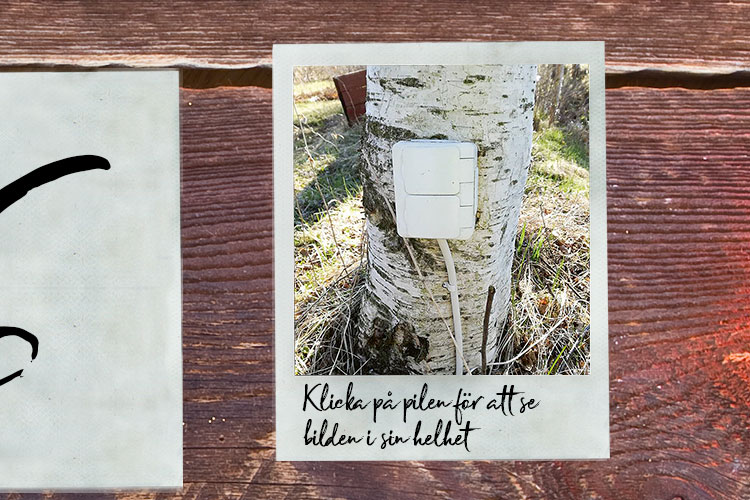 Klicka på pilen för att se
bilden i sin helhet